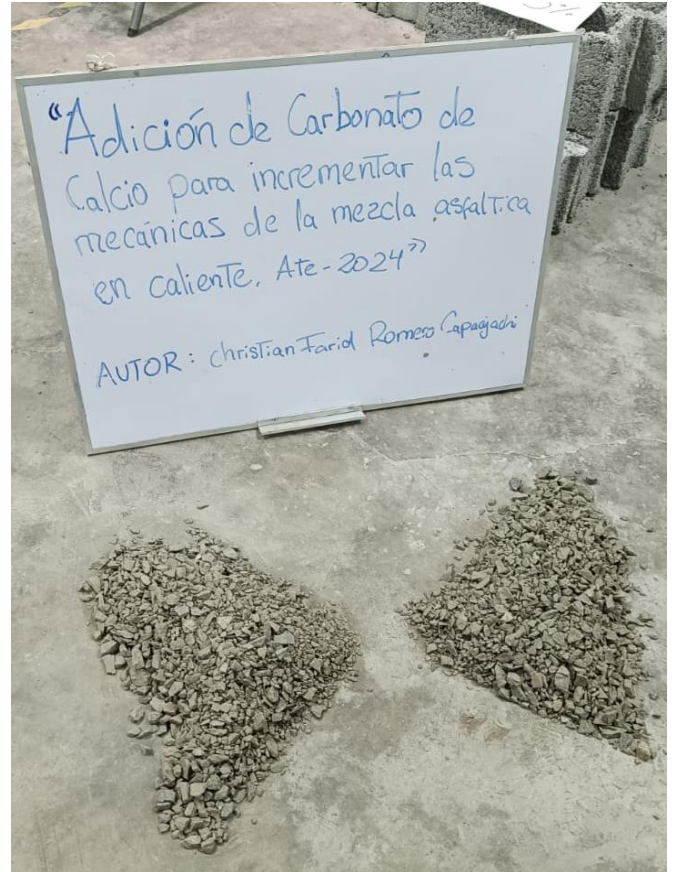 "Adición de Carbonato de
Calcio para incrementar las
mecánicas de la mezcla asfaltica
en caliente, Ate-2024"
AUTOR: christian Farid Romero
5%